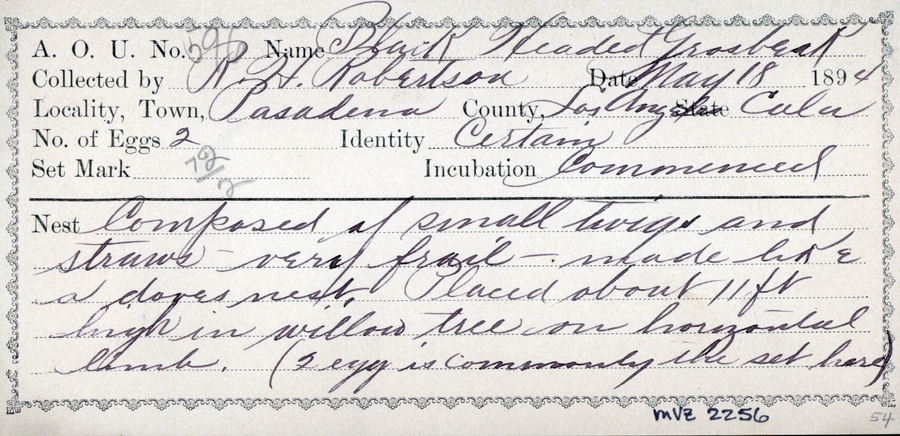 A. O. U. No. 596 Name Black Headed Grosbeak
Collected by R. H. Robertson Date May 18 1894
Locality, Town, Pasadena County, Los Angeles State Cala
No. of Eggs 2 Identity Certain
Set Mark Incubation Commenced
Nest Composed of small twigs and
straws - very frail - made like
a doves nest. Placed about 11 ft
high in willow tree on horizontal
limb. (2 egg is commonly the set here)
MVZ 2256
54